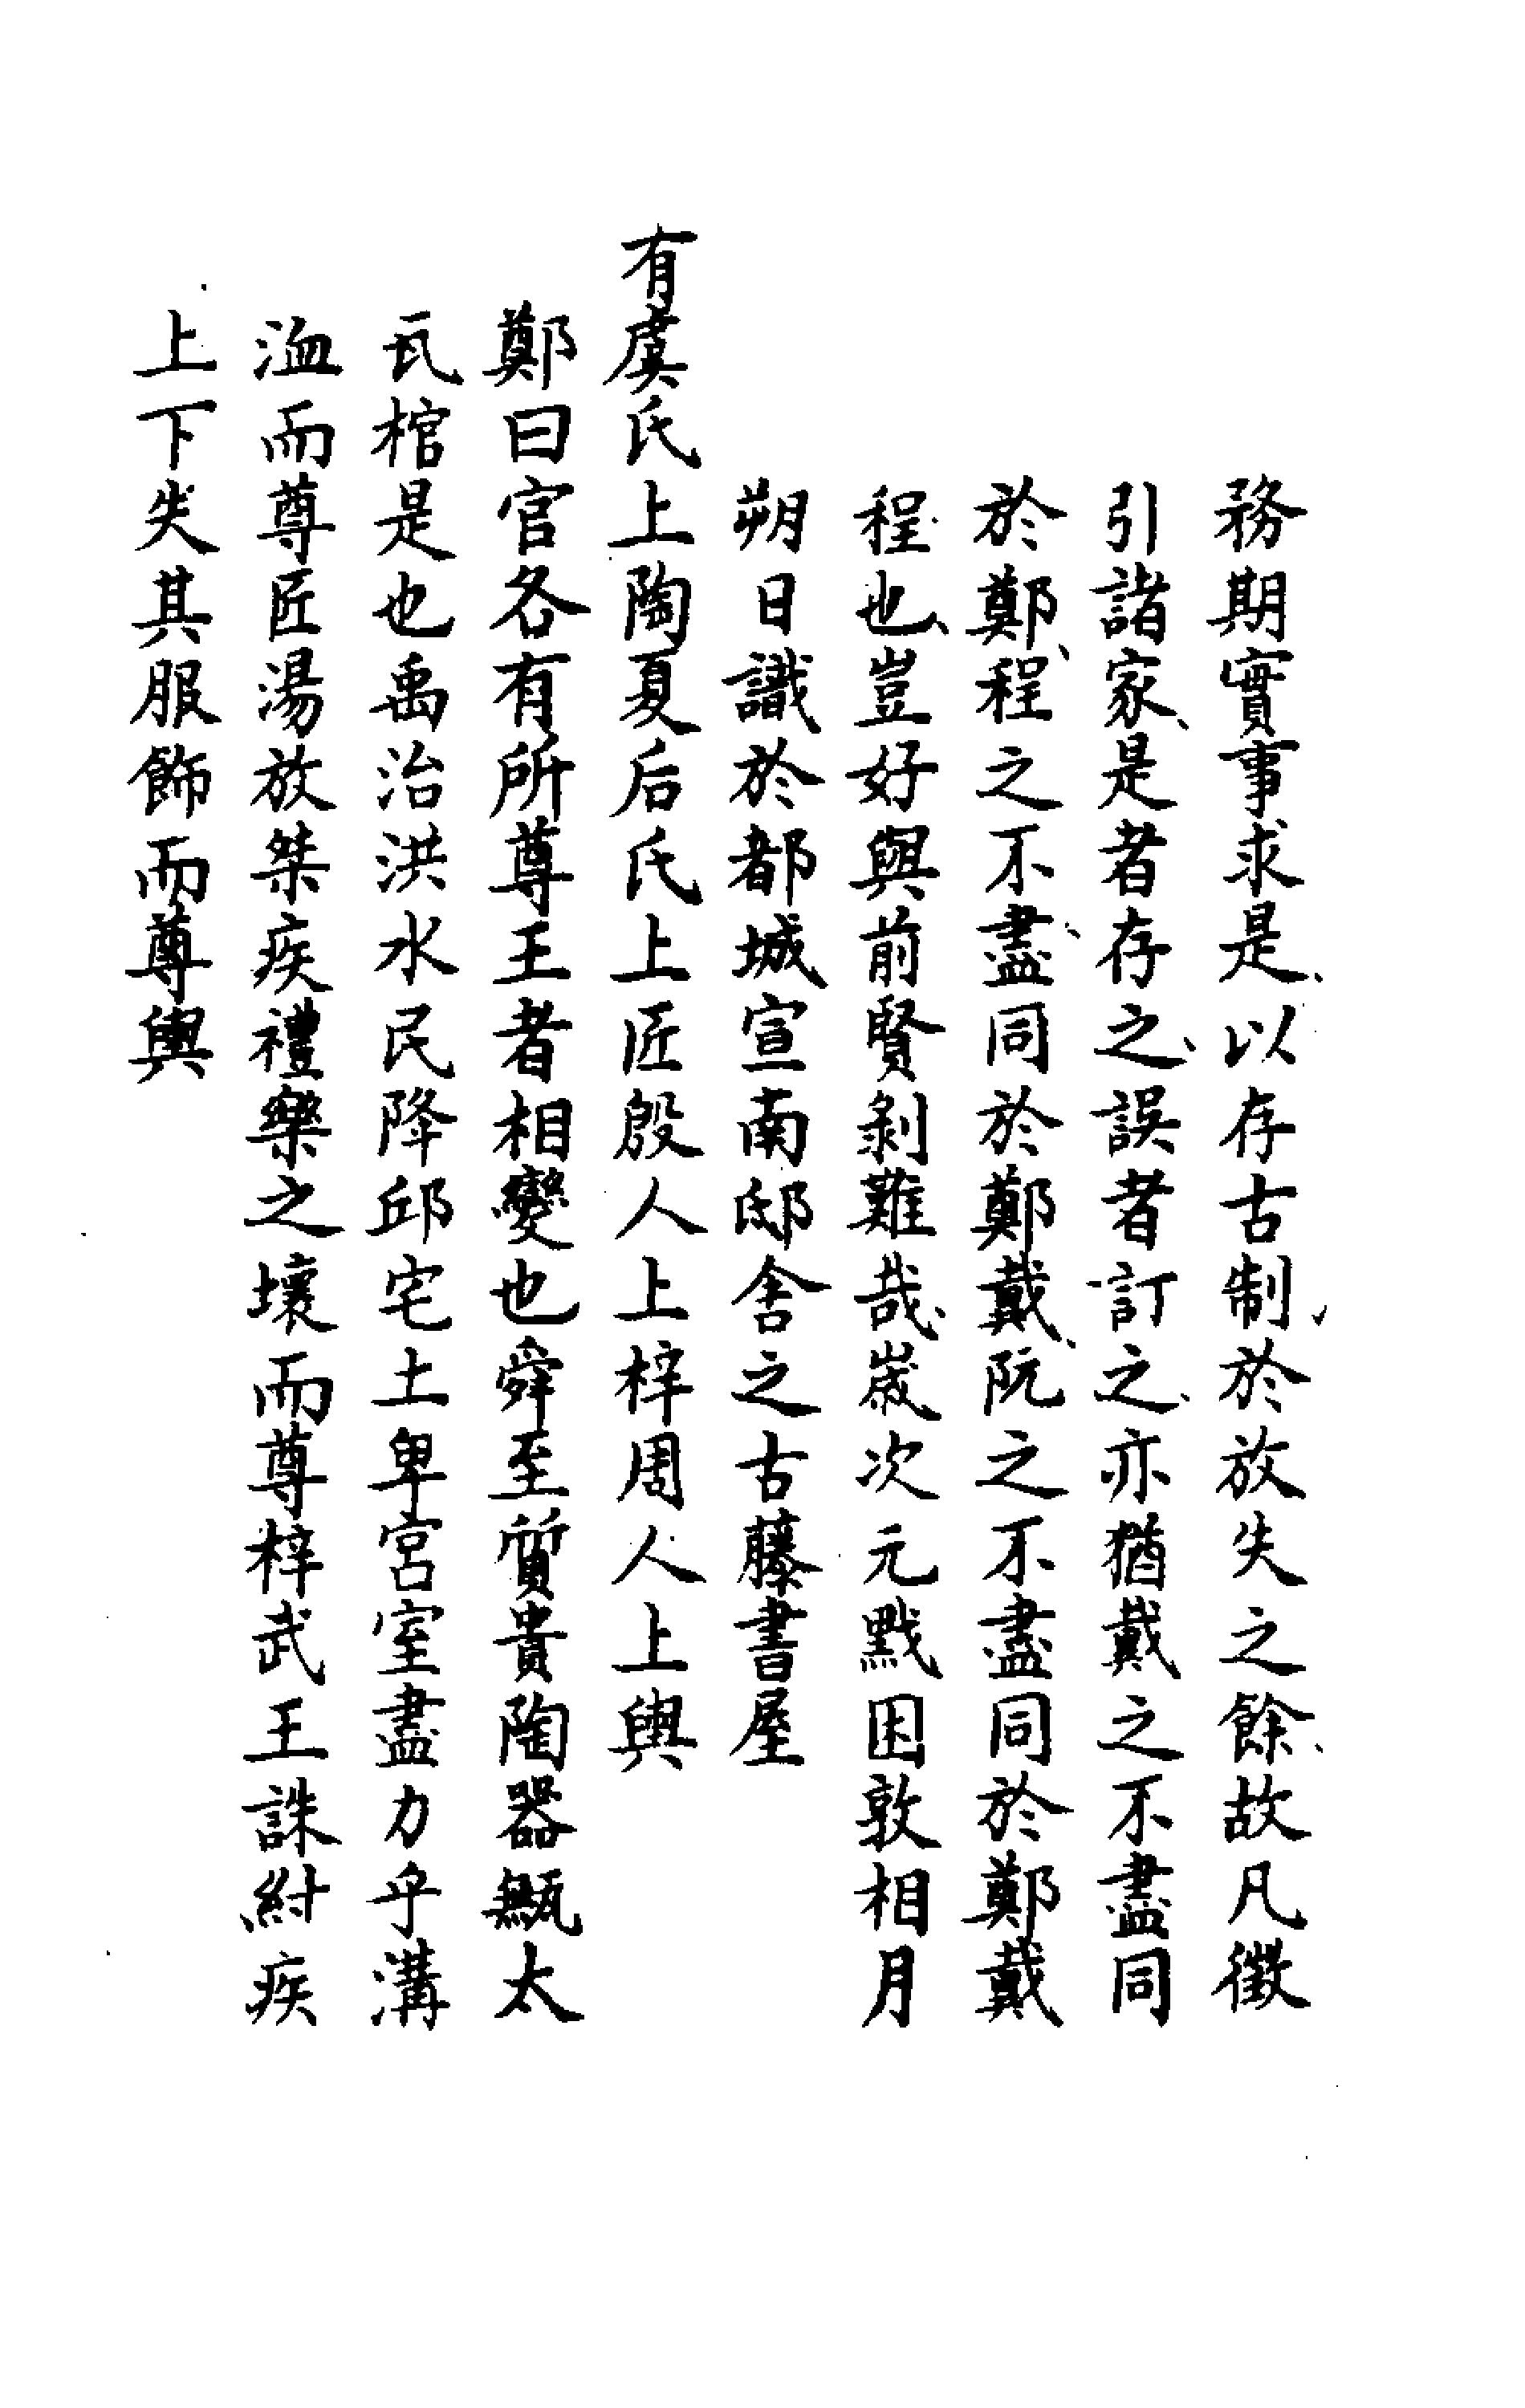 務期實事求是、以存古制、於放失之餘、故凡徵
引諸家、是者存之、誤者訂之、亦猶戴之不盡同
於鄭、程之不盡、同於鄭戴、阮之不盡同於鄭戴
程也、豈好與前賢剝難哉、嵗次元黓困敦相月
朔日識於都城宣南邸舍之古藤書屋
有虞氏上陶夏后氏上匠殷人上梓周人上輿
鄭曰官各有所尊王者相變也舜至質貴陶器甒太
瓦棺是也禹治洪水民降邱宅土卑宮室盡力乎溝
洫而尊匠湯放桀疾禮樂之壞而尊梓武王誅紂疾
上下失其服飾而尊輿